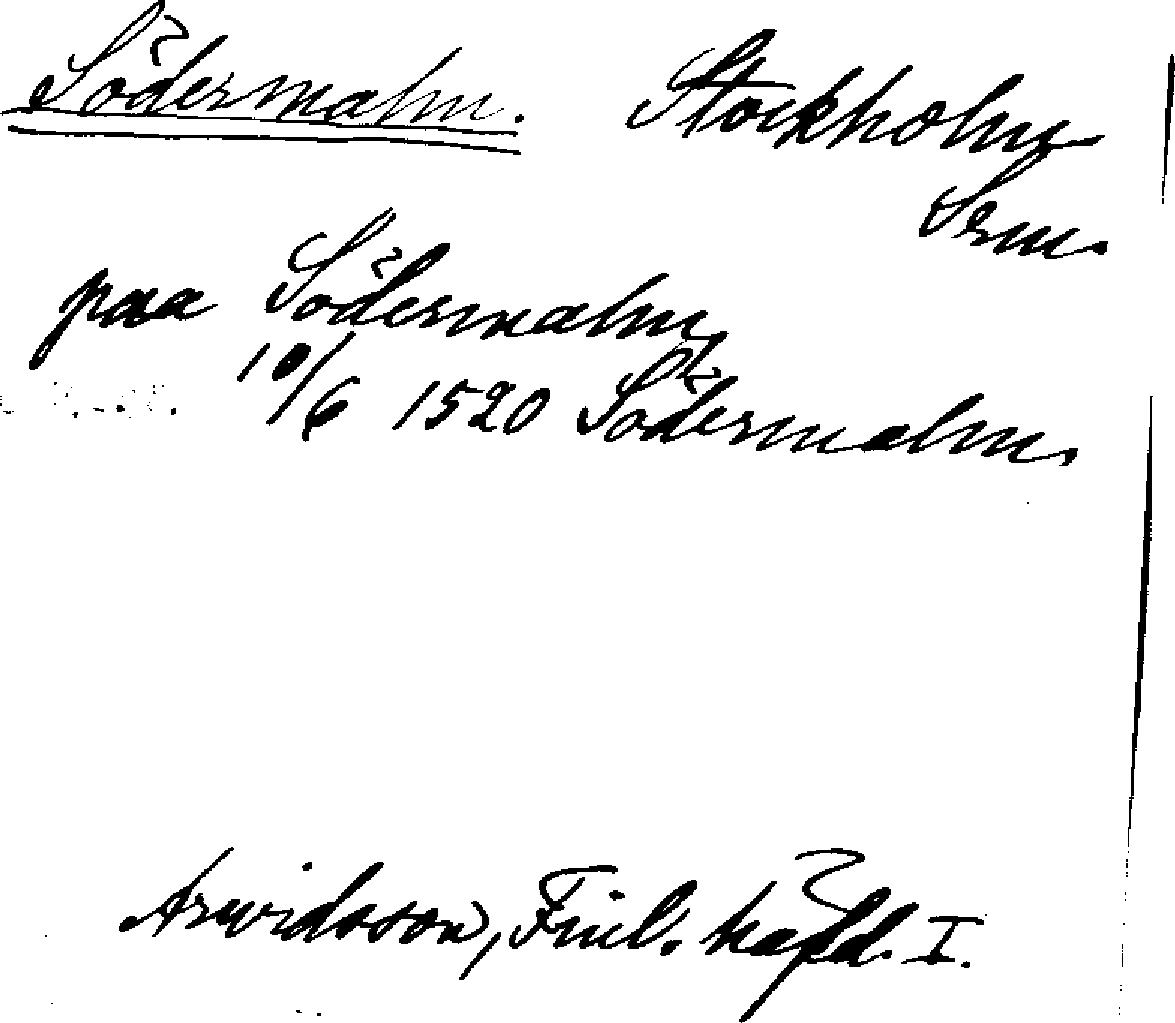 Södermalm. Stockholm
Srm.
paa Södermalm,
10/6 1520 Södermalm.
Arwidsson, Finl. häfd. I.